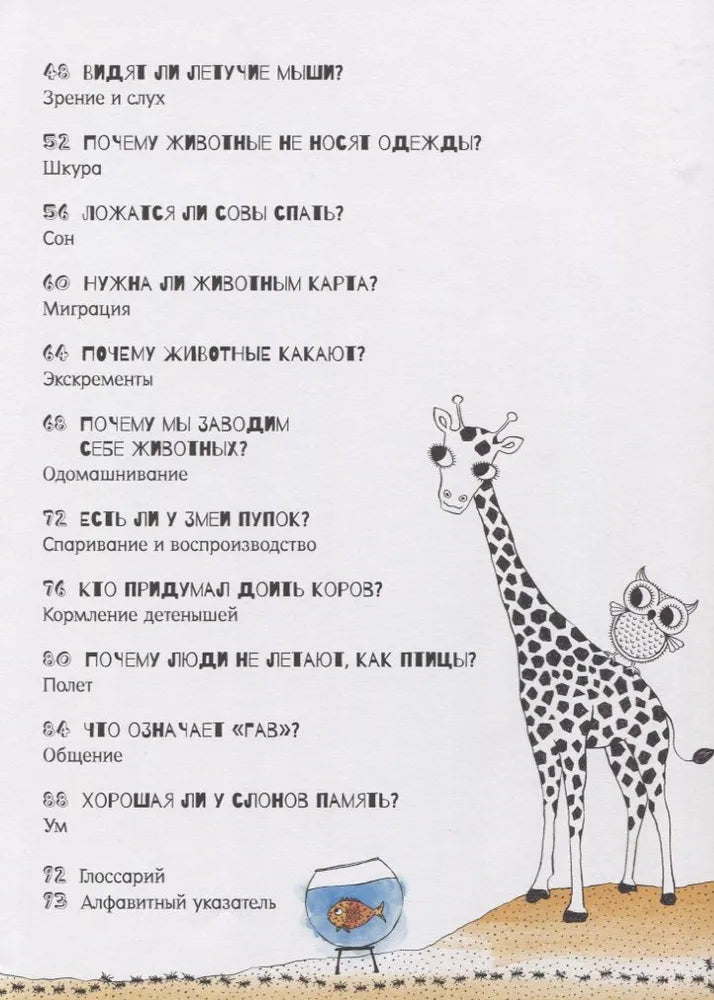 48 ВИДЯТ ЛИ ЛЕТУЧИЕ МЫШИ?
Зрение и слух
52 ПОЧЕМУ ЖИВОТНЫЕ НЕ НОСЯТ ОДЕЖДЫ?
Шкура
56 ЛОЖАТСЯ ЛИ СОВЫ СПАТЬ?
Сон
60 НУЖНА ЛИ ЖИВОТНЫМ КАРТА?
Миграция
64 ПОЧЕМУ ЖИВОТНЫЕ КАКАЮТ?
Экскременты
68 ПОЧЕМУ МЫ ЗАВОДИМ
СЕБЕ ЖИВОТНЫХ?
Одомашнивание
72 ЕСТЬ ЛИ У ЗМЕИ ПУПОК?
Спаривание и воспроизводство
76 КТО ПРИДУМАЛ ДОИТЬ КОРОВ?
Кормление детенышей
80 ПОЧЕМУ ЛЮДИ НЕ ЛЕТАЮТ, КАК ПТИЦЫ?
Полет
84 ЧТО ОЗНАЧАЕТ «ГАВ»?
Общение
88 ХОРОШАЯ ЛИ У СЛОНОВ ПАМЯТЬ?
Ум
92 Глоссарий
93 Алфавитный указатель